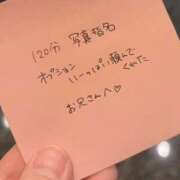 120分 写真指名
オプション
いーっぱい頼んで
くれた
お兄さんへ♡